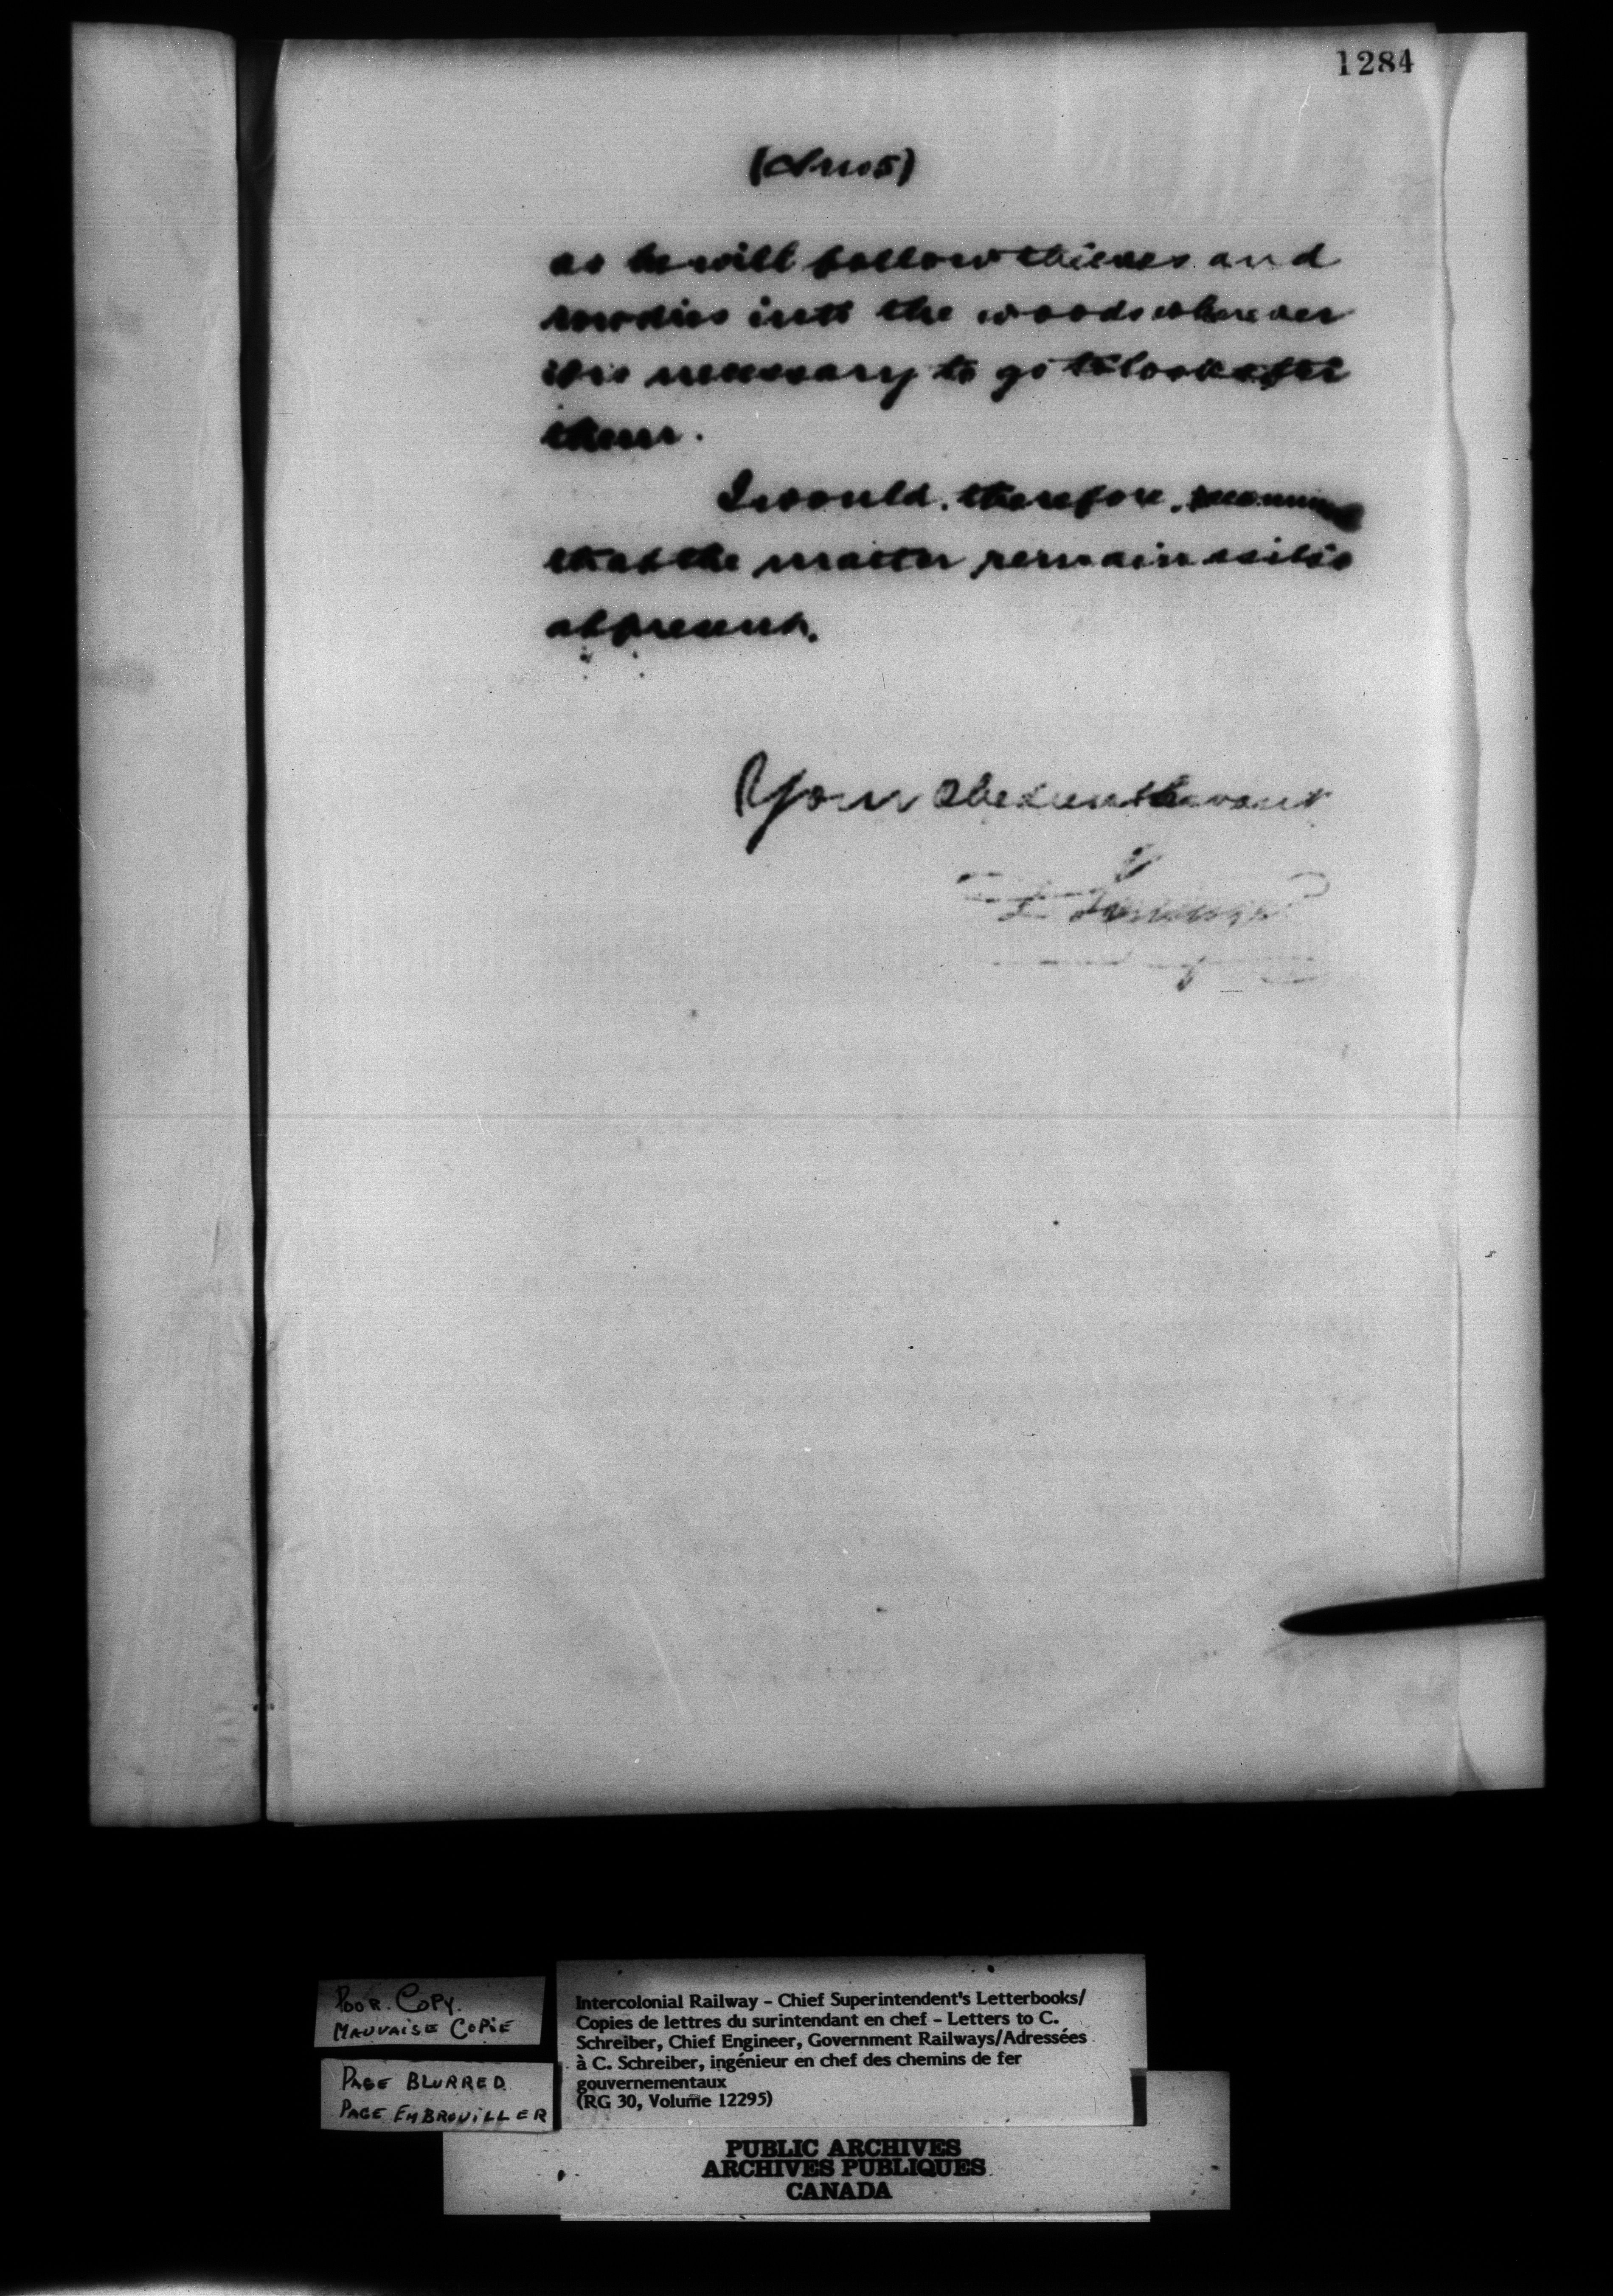 1284
(No 5)
as he will follow thieves and
rowdies into the woods wherever
it is necessary to go to look after
them.
I would, therefore, recommend
that the matter remain as it is
at present.
Your Obedient Servant
POOR COPY.
MAUVAISE COPIE
PAGE BLURRED
PAGE EMBROUILLER
Intercolonial Railway - Chief Superintendent's Letterbooks/
Copies de lettres du surintendant en chef - Letters to C.
Schreiber, Chief Engineer, Government Railways/Adressées
à C. Schreiber, ingénieur en chef des chemins de fer
gouvernementaux
(RG 30, Volume 12295)
PUBLIC ARCHIVES
ARCHIVES PUBLIQUES
CANADA